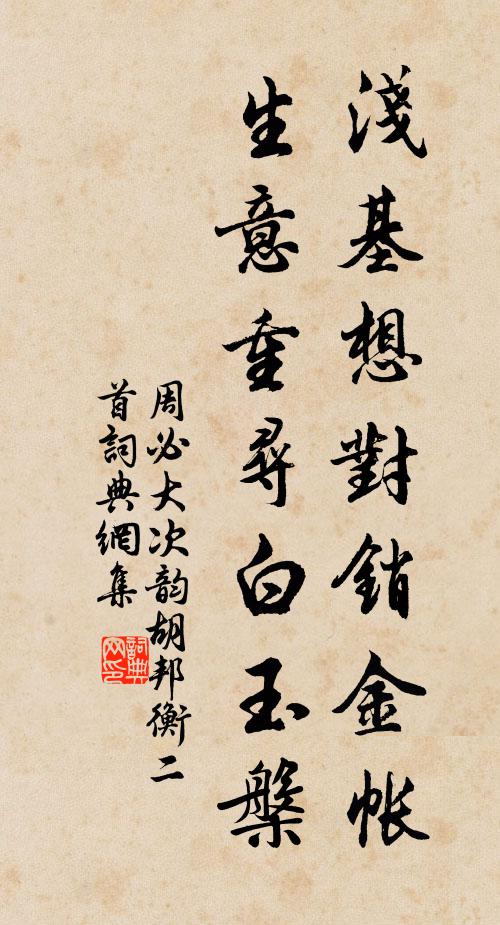 淺基想對銷金帳
生意重尋白玉槃
周必大次韵胡邦衡二
首詞典網集
詞典网印